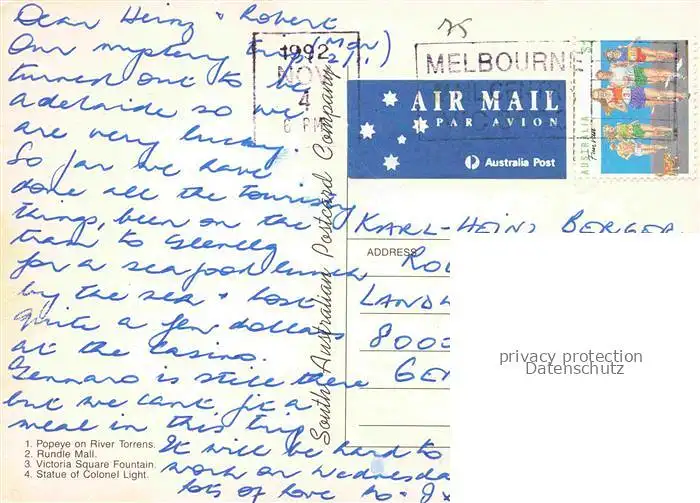 Dear Heinz + Robert
Our mystery trip (Mon/
turned out to be
adelaide so we
are very lucky.
So far we have
done all the touristy
things, been on the
tram to Glenelg
for a seafood lunch
by the sea + lost
quite a few dollars
at the casino.
Gennaro is still there
but we cant fit a
meal in this trip
It will be hard to
work on Wednesda
lots of love
1. Popeye on River Torrens.
2. Rundle Mall.
3. Victoria Square Fountain.
4. Statue of Colonel Light.
South Australian Postcard Company
1992
NOV
4
MELBOURNE
AIR MAIL
PAR AVION
Australia Post
AUSTRALIA
Fun run
KARL-HEINZ BERGER
ADDRESS
LANDW
800
GE
privacy protection
Datenschutz